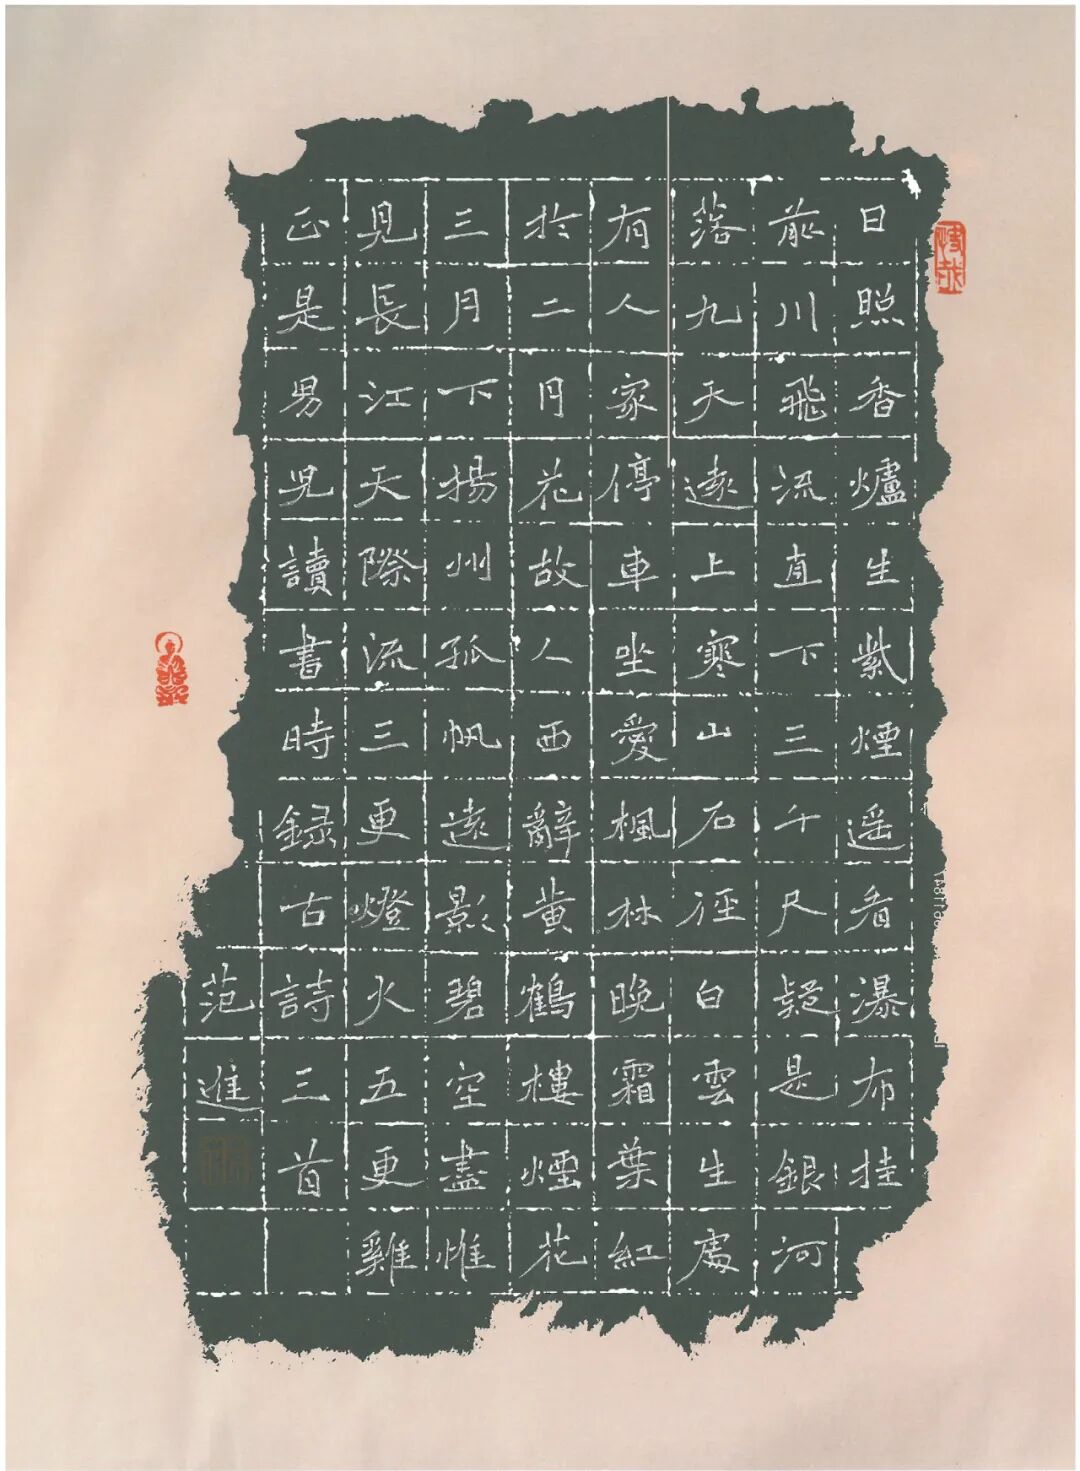 日照香爐生紫煙遥看瀑布挂
前川飛流直下三千尺疑是銀河
落九天遠上寒山石徑白雲生處
有人家停車坐愛楓林晚霜葉紅
於二月花故人西辭黄鶴樓煙花
三月下揚州孤帆遠影碧空盡惟
見長江天際流三更燈火五更雞
正是男兒讀書時録古詩三首
范進